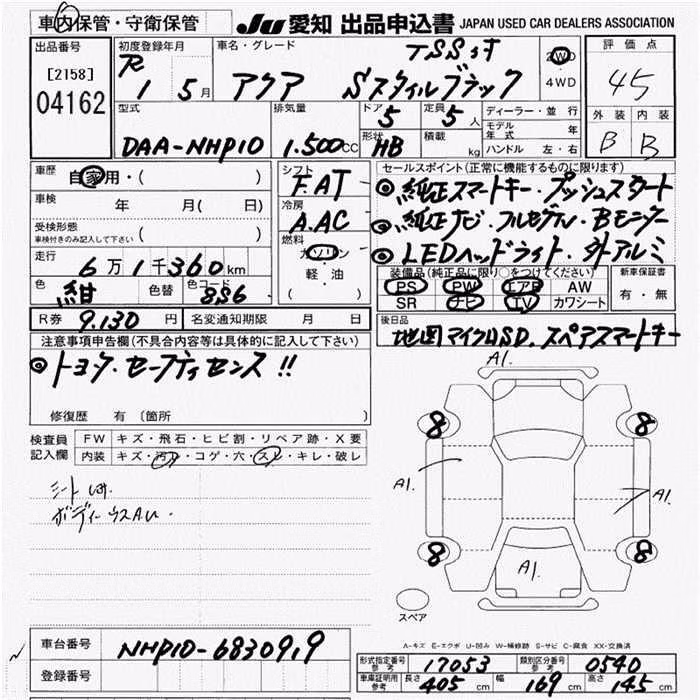 車内保管・守衛保管 JU 愛知 出品申込書 JAPAN USED CAR DEALERS ASSOCIATION
出品番号 [2158] 04162
初度登録年月 R 1 5月
車名・グレード TSSﾅｷ アクア Sスタイルブラック
2WD 4WD
評価点 4.5
外装 B 内装 B
型式 DAA-NHP10
排気量 1.500CC
ドア 5 定員 5人
形状 HB 積載 kg
ディーラー・並行
モデル年式 年
ハンドル 左・右
車歴 自家用・( )
車検 年 月( 日)
受検形態 車検付きのみ記入して下さい ( )
走行 6万1千360km
色 紺 色替 色コード 8S6
シフト F.AT
冷房 A.AC
燃料 ガソリン 軽・油 ( )
セールスポイント(正常に機能するものに限ります)
◎純正スマートキー・プッシュスタート
◎純正ナビ・フルセグTV・Bモニター
◎LEDヘッドライト・社外アルミ
装備品(純正品に限り○をつけてください)
PS PW エアB AW
SR ナビ TV カワシート
新車保証書 有・無
R券 9.130円 名変通知期限 月 日
後日品 地図マイクロSD. スペアスマートキー
注意事項申告欄(不具合内容等は具体的に記入して下さい)
◎トヨタ・セーフティセンス!!
修復歴 有〔箇所 〕
検査員記入欄
FW キズ・飛石・ヒビ割・リペア跡・X要
内装 キズ・汚れ・コゲ・穴・スレ・キレ・破レ
シート
ボディー ウスAU.
A1.
8 8
A1. A1.
8 8
A1.
スペア
A-キズ E-エクボ U-凹み W-補修跡 S-サビ C-腐食 XX-交換済
車台番号 NHP10-6830919
登録番号
形式指定番号 参考 17053 類別区分番号 参考 0540
車庫証明用 参考 長さ 405cm 幅 169cm 高さ 145cm